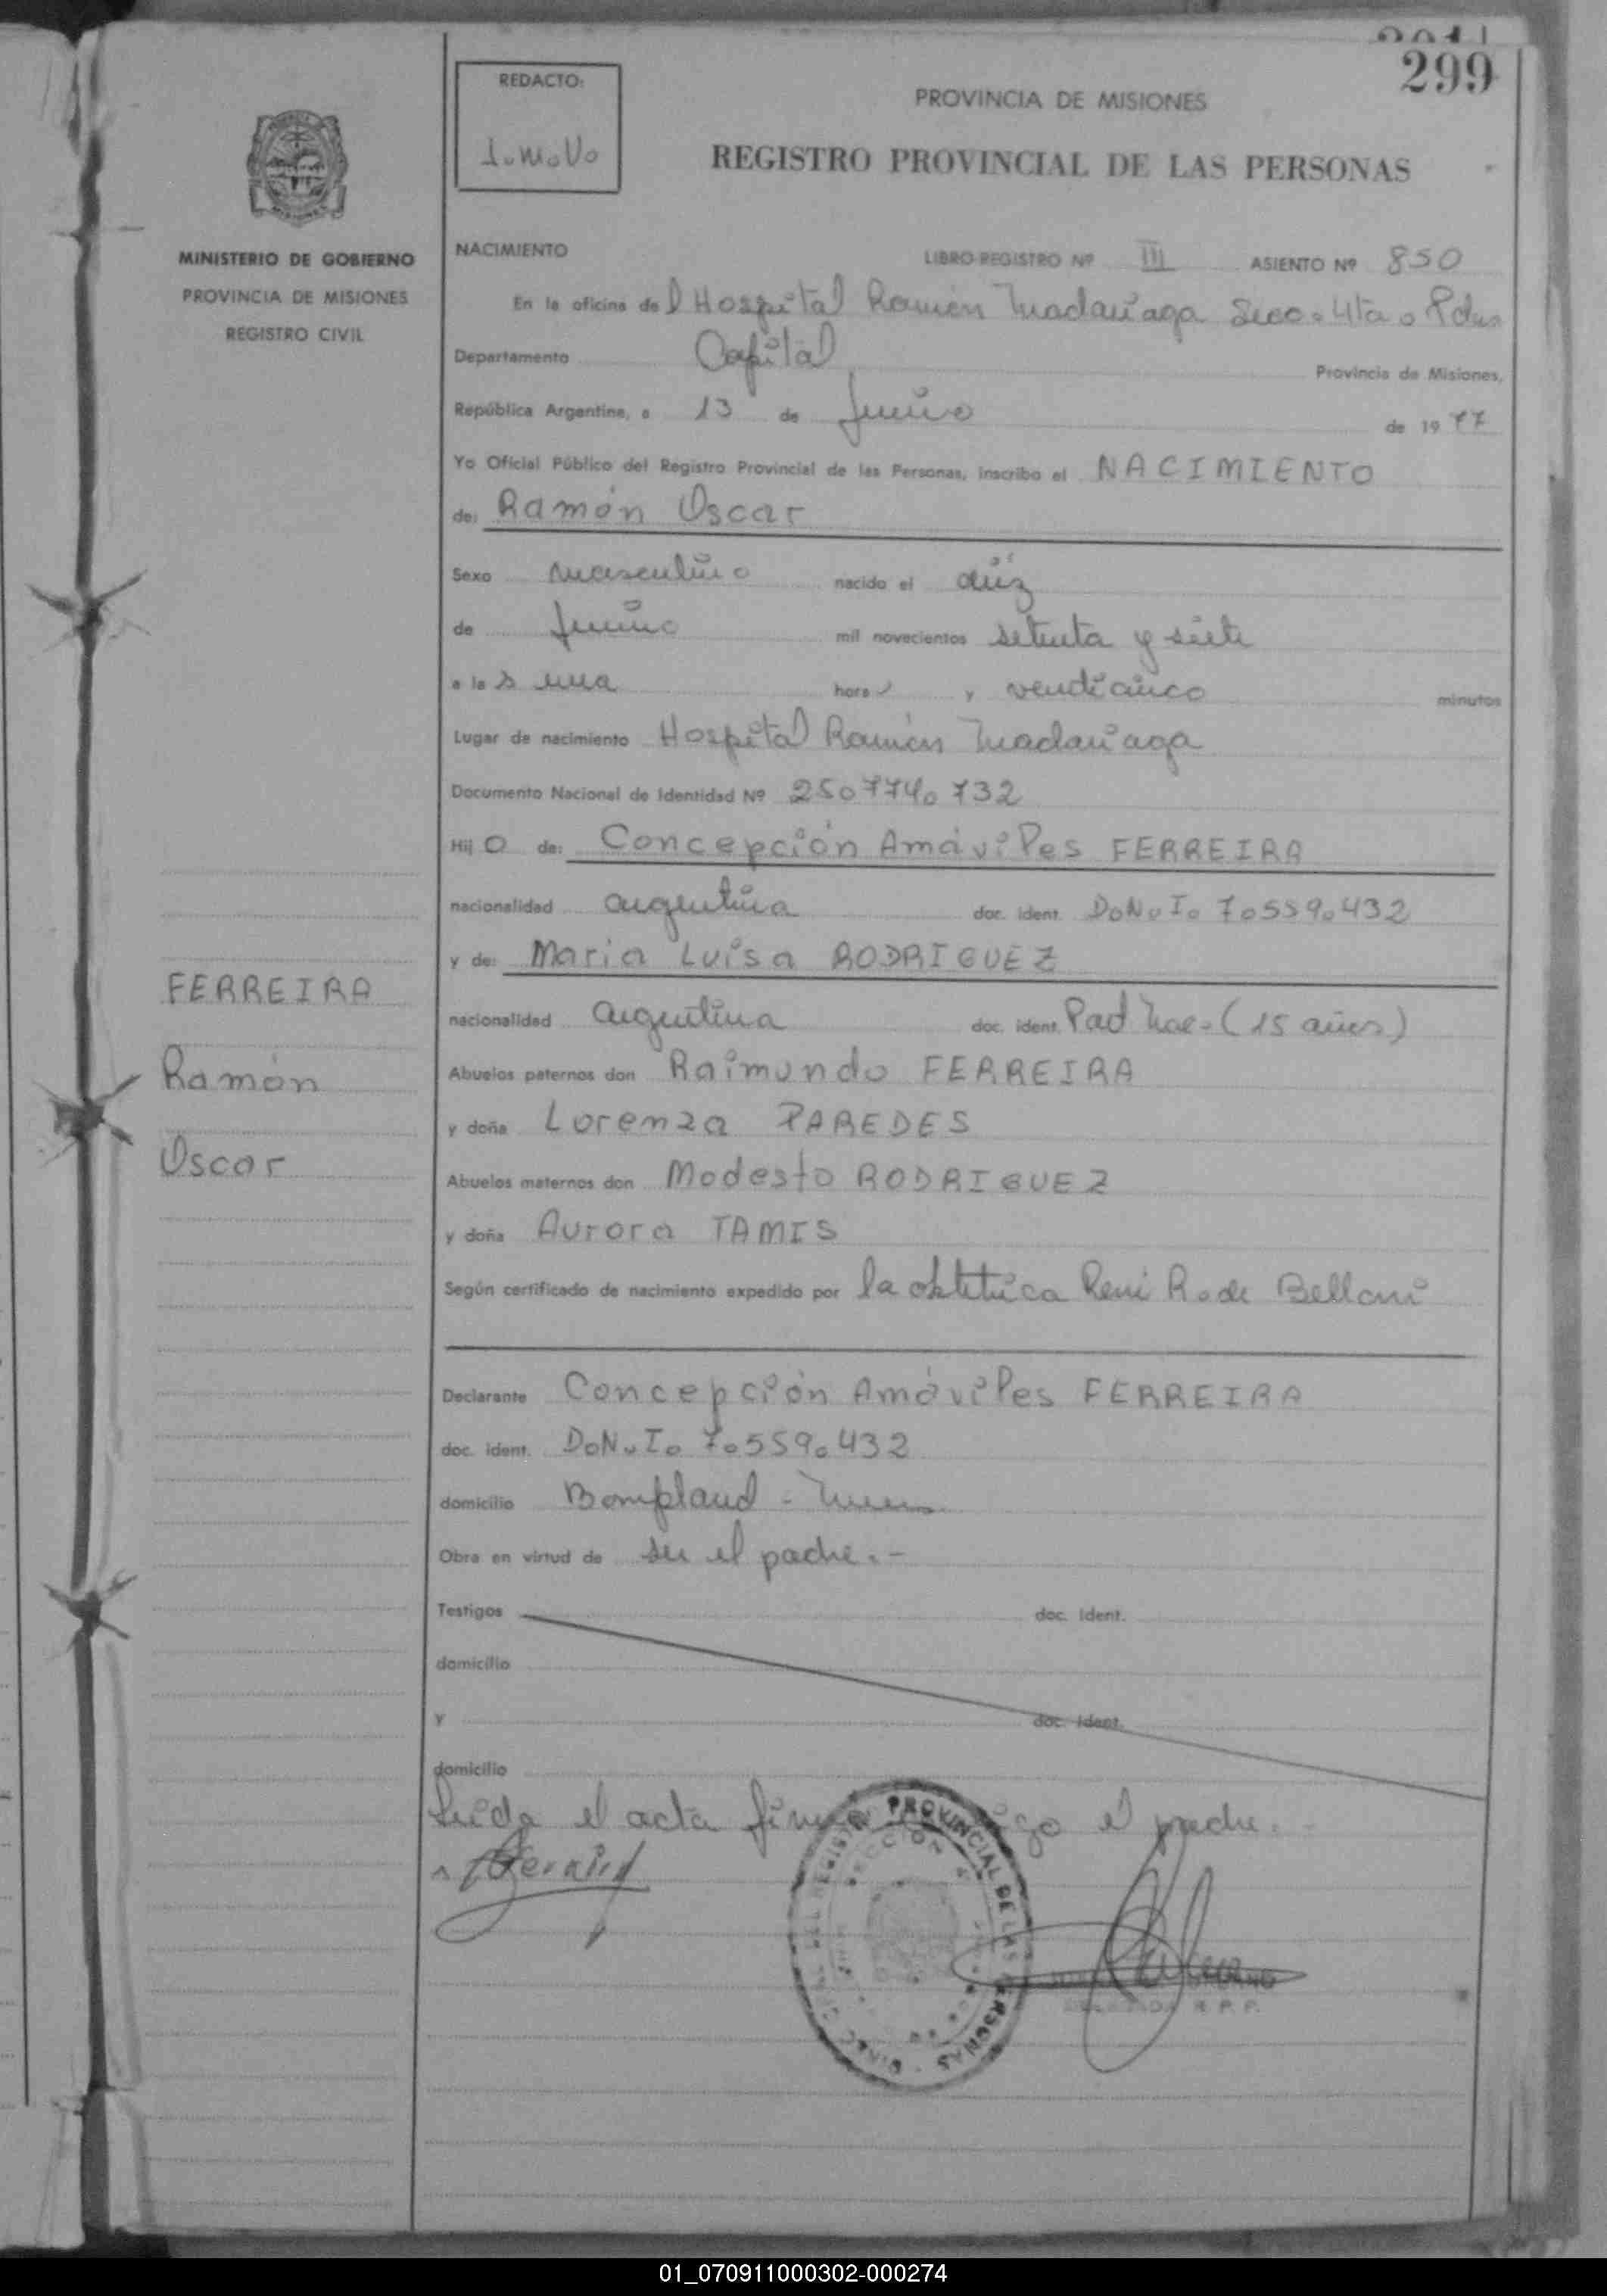 299
REDACTO:
J.M.V.
PROVINCIA DE MISIONES
REGISTRO PROVINCIAL DE LAS PERSONAS
MINISTERIO DE GOBIERNO
PROVINCIA DE MISIONES
REGISTRO CIVIL
NACIMIENTO LIBRO-REGISTRO Nº III ASIENTO Nº 850
En la oficina del Hospital Ramón Madariaga Secc. 4ta. Pdas
Departamento Capital Provincia de Misiones,
República Argentina, a 13 de Junio de 1977
Yo Oficial Público del Registro Provincial de las Personas, inscribo el NACIMIENTO
de: Ramón Oscar
Sexo masculino nacido el diéz
de Junio mil novecientos setenta y siete
a las una hora y venticinco minutos
Lugar de nacimiento Hospital Ramón Madariaga
Documento Nacional de Identidad Nº 25.774.732
Hijo de: Concepción Amáviles FERREIRA
nacionalidad argentina doc. ident. D.N.I. 7.559.432
y de: Maria Luisa RODRIGUEZ
nacionalidad argentina doc. ident. Pad Mae. (15 años)
Abuelos paternos don Raimundo FERREIRA
y doña Lorenza PAREDES
Abuelos maternos don Modesto RODRIGUEZ
y doña Aurora TAMIS
Según certificado de nacimiento expedido por la obstetrica Reni R. de Belloni
FERREIRA
Ramón
Oscar
Declarante Concepción Amáviles FERREIRA
doc. ident. D.N.I. 7.559.432
domicilio Bompland - Mnes.
Obra en virtud de ser el padre.-
Testigos doc. ident.
domicilio
y doc. ident.
domicilio
Leída el acta firma conmigo el padre.-
REGISTRO PROVINCIAL DE LAS PERSONAS
SECCION
R. P. P.
01_070911000302-000274